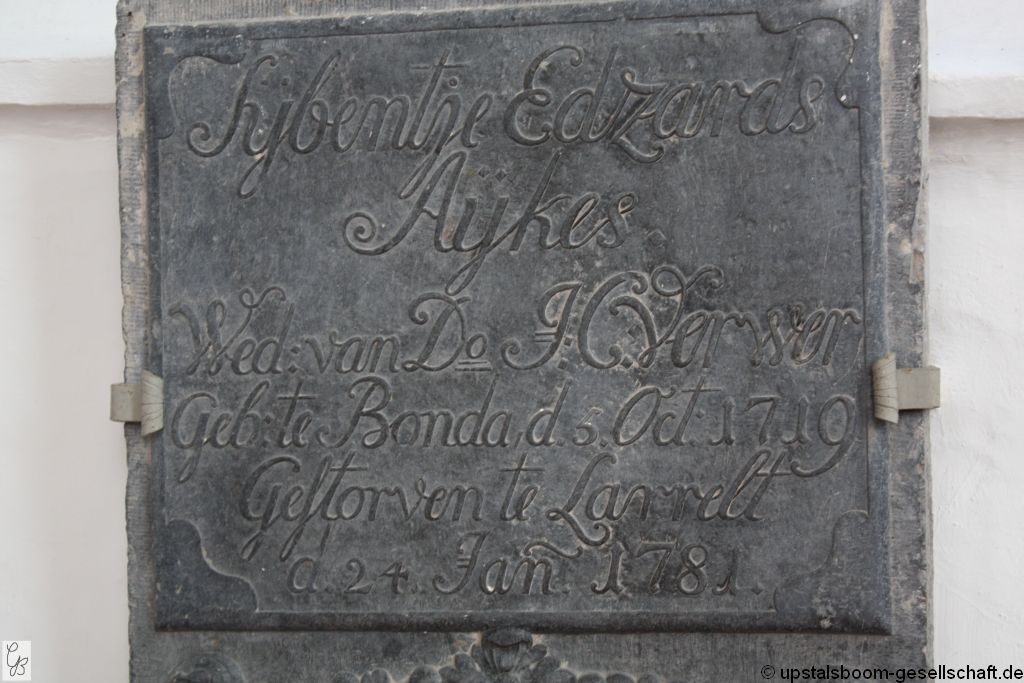 Tijbentje Edzards
Aÿkes.
Wed: van Do J: C: Verwer,
Geb: te Bonda, d. 5. Oct: 1719
Gestorven te Larrelt
d. 24. Jan̄. 1781.
GB
© upstalsboom-gesellschaft.de